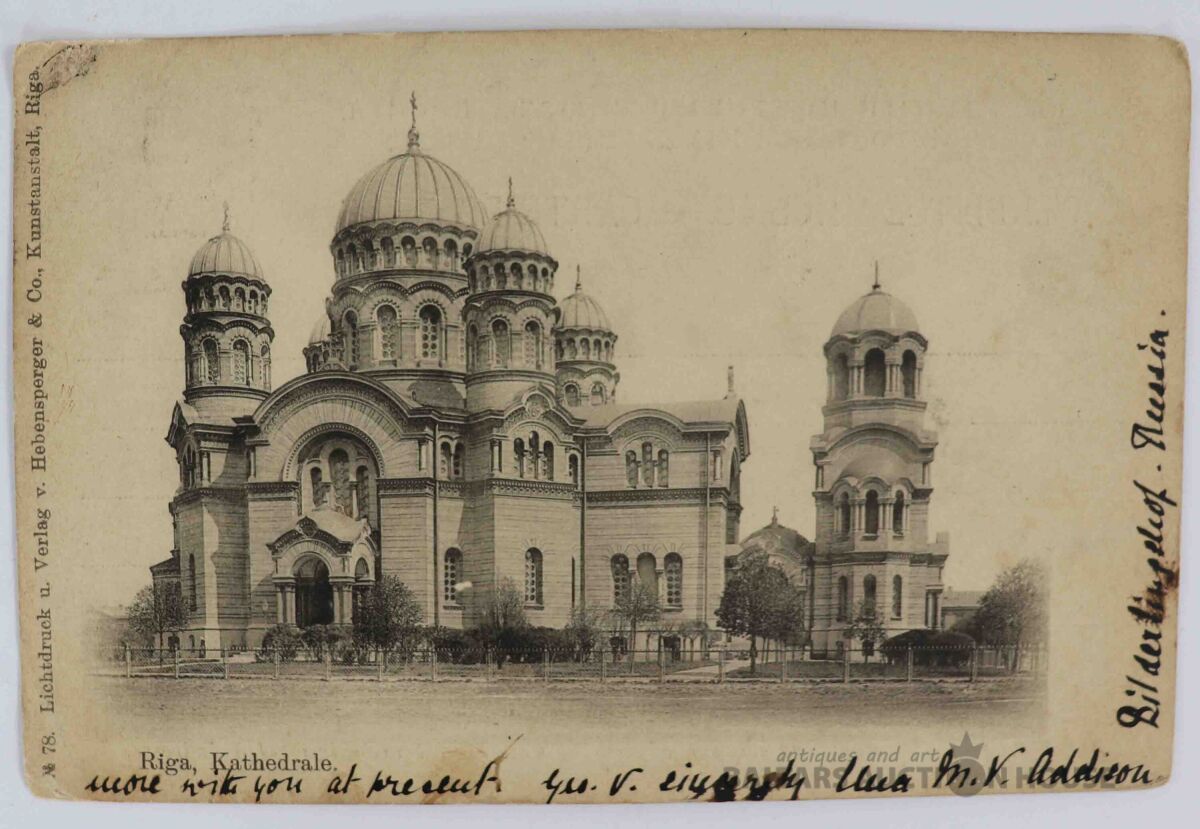 № 78. Lichtdruck u. Verlag v. Hebensperger & Co., Kunstanstalt, Riga.
Bilderlingshof. Russia.
Riga, Kathedrale.
more with you at present. Yrs. v. sincerely Una M. V Addison.
antiques and art
AUCTION HOUSE